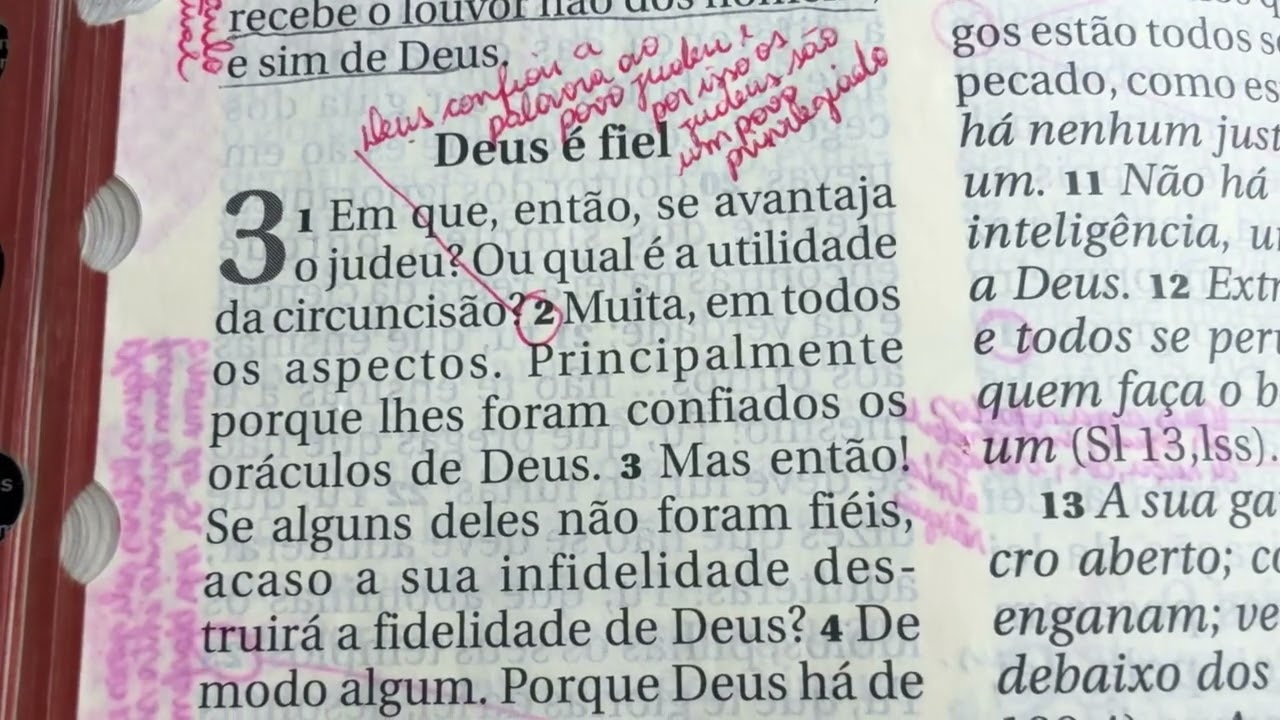 recebe o louvor não dos homens,
e sim de Deus.
Deus confiou a
palavra ao
povo judeu e
por isso os
judeus são
um povo
privilegiado
Deus é fiel
3 1 Em que, então, se avantaja
o judeu? Ou qual é a utilidade
da circuncisão? 2 Muita, em todos
os aspectos. Principalmente
porque lhes foram confiados os
oráculos de Deus. 3 Mas então!
Se alguns deles não foram fiéis,
acaso a sua infidelidade des-
truirá a fidelidade de Deus? 4 De
modo algum. Porque Deus há de
gos estão todos s
pecado, como es
há nenhum just
um. 11 Não há
inteligência, u
a Deus. 12 Extr
e todos se per
quem faça o b
um (Sl 13,lss).
13 A sua ga
cro aberto; c
enganam; ve
debaixo dos